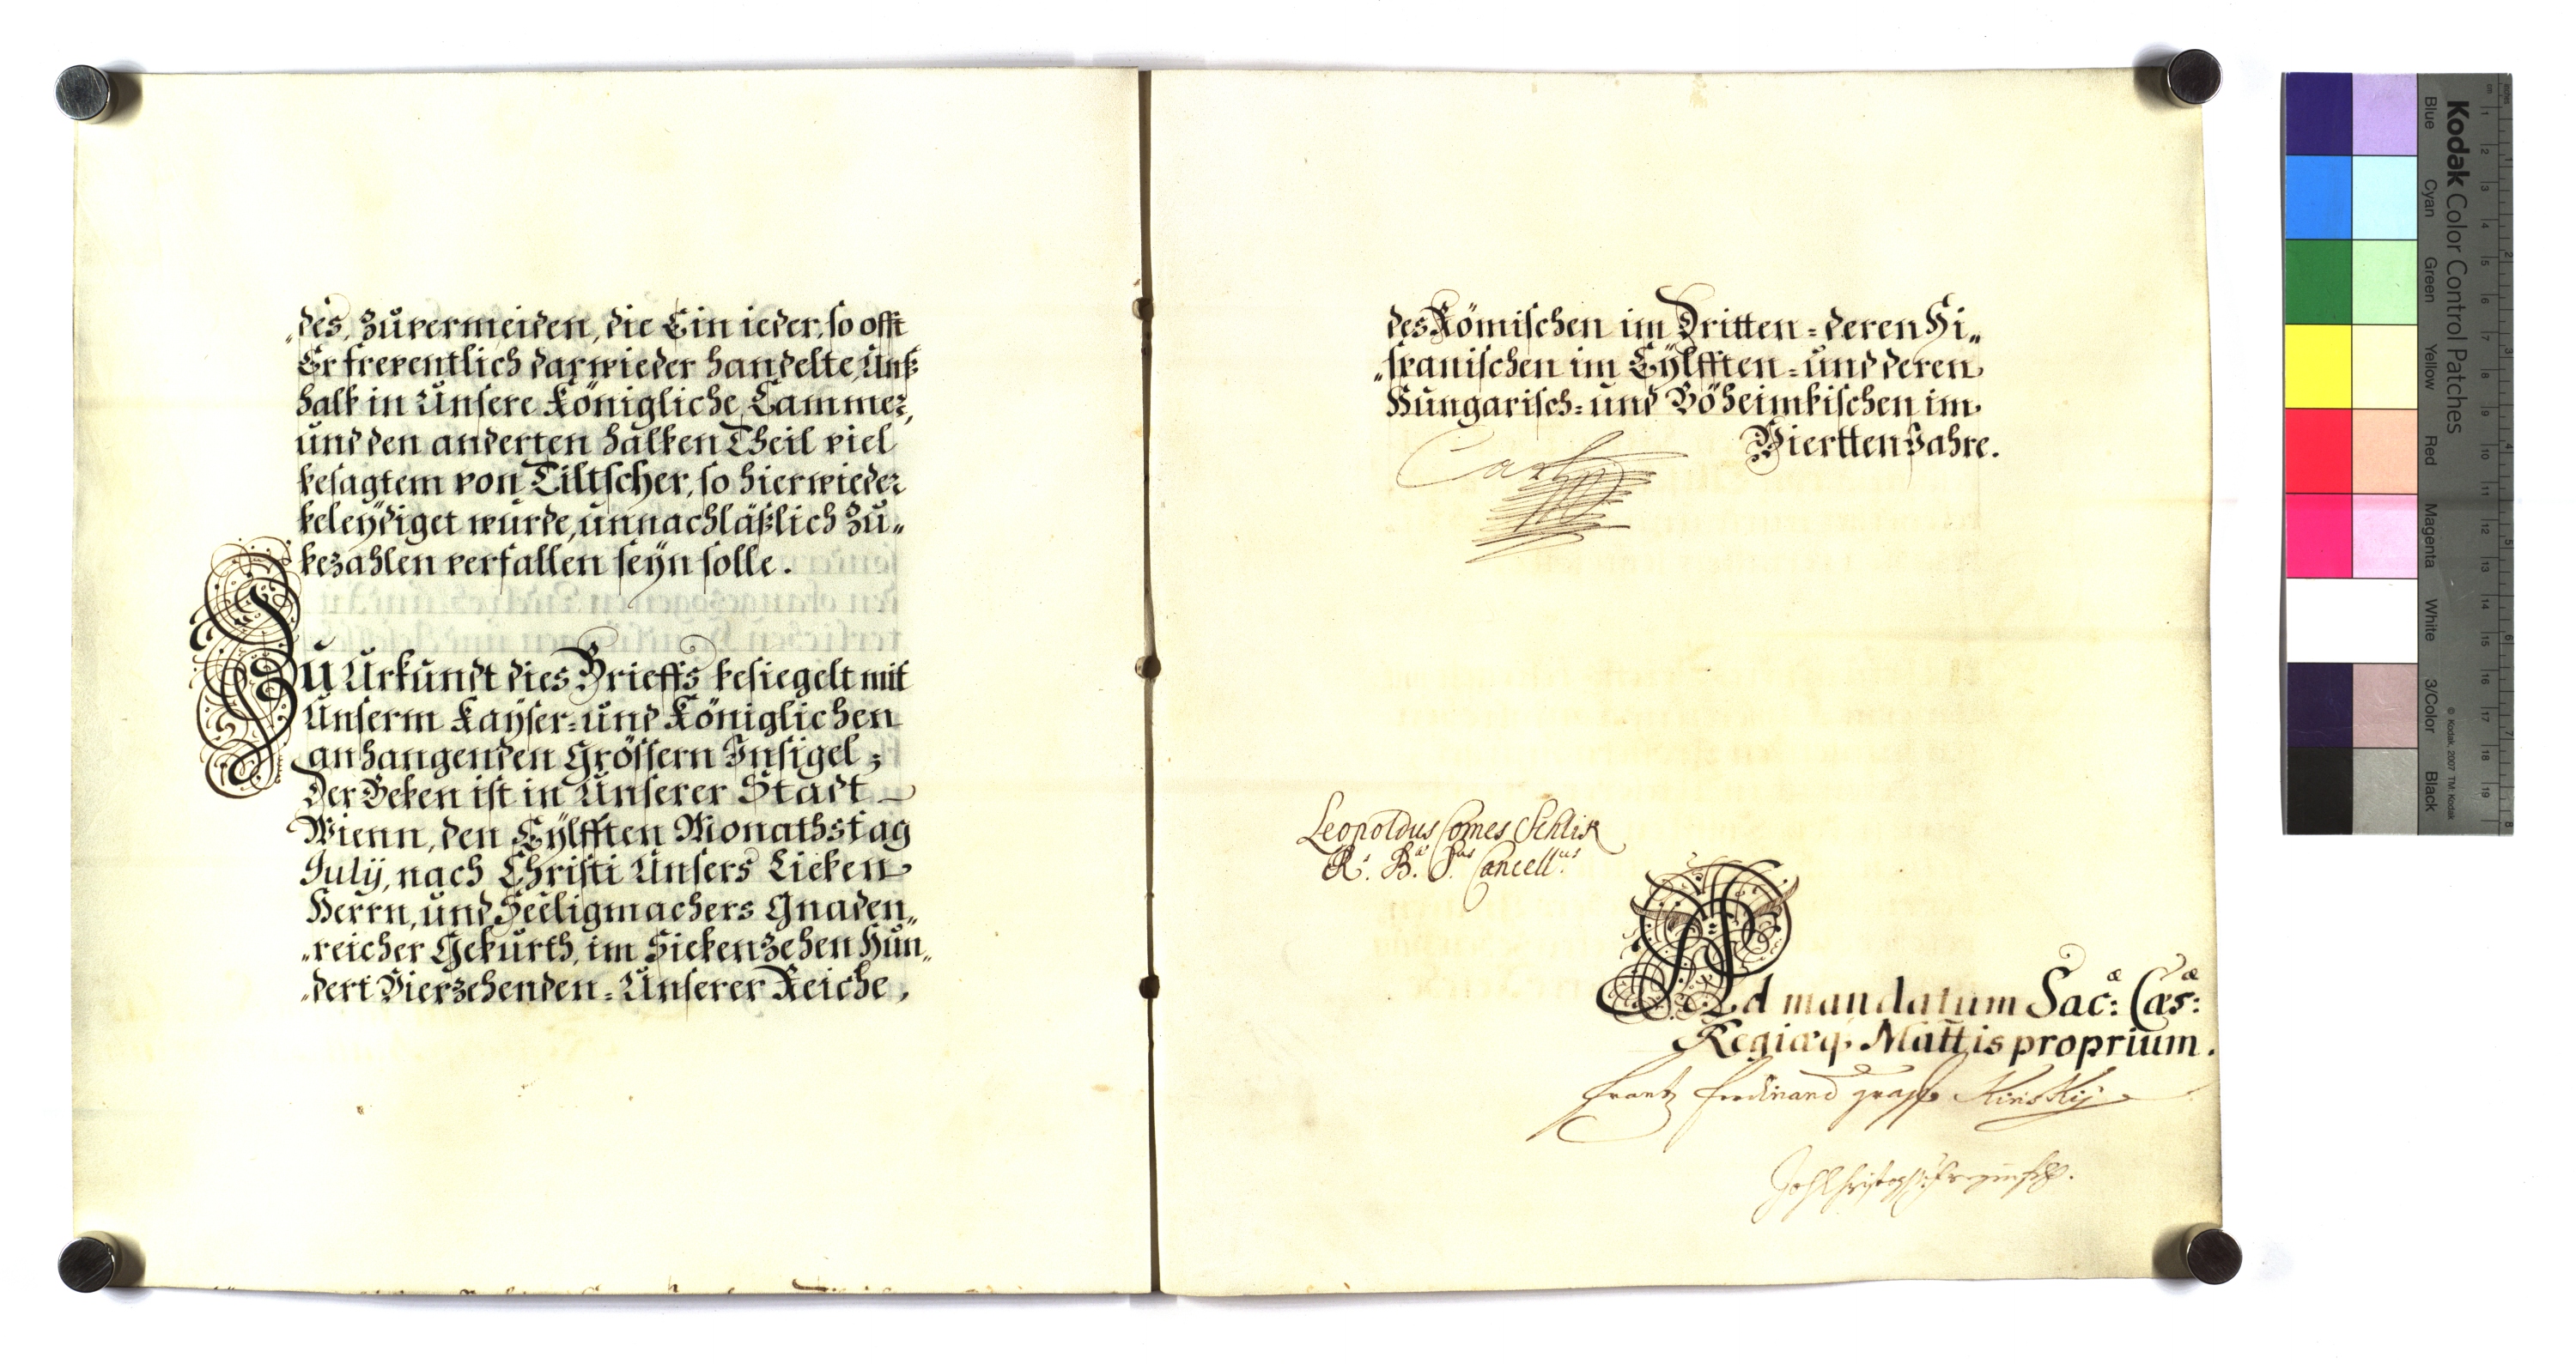 „des, zuvermeiden, die Ein ieder, so offt
Er freventlich darwieder handelte, Unß
halb in Unsere Königliche Cammer,
und den anderten halben Theil viel
besagtem von Tiltscher, so hierwieder
beleÿdiget wurde, unnachläßlich zu„
bezahlen verfallen seÿn solle.
Zu Urkundt dies Brieffs besiegelt mit
Unserm Kaÿser= und Königlichen
anhangenden Grössern Insigel;
Der Geben ist in Unserer Stadt
Wienn, den Eÿlfften Monathstag
Julij, nach Christi Unsers Lieben
Herrn, und Seeligmachers Gnaden„
„reicher Geburth, im Siebenzehen Hun„
„dert Vierzehenden= Unserer Reiche,
des Römischen im Dritten= deren Hi„
„spanischen im Eÿlfften= und deren
Hungarisch= und Böheimbischen im
Viertten Jahre.
Carl
Leopoldus Comes Schlik
R.s B.ae S.us Cancell.us
Ad mandatum Sac:ae Cæs:ae
Regiæq. Mattis proprium.
Frantz Ferdinand graff Kinskÿ
Kodak Color Control Patches
Blue Cyan Green Yellow Red Magenta White 3/Color Black
© Kodak, 2007 TM: Kodak
cm 1 2 3 4 5 6 7 8 9 10 11 12 13 14 15 16 17 18 19
inches 1 2 3 4 5 6 7 8